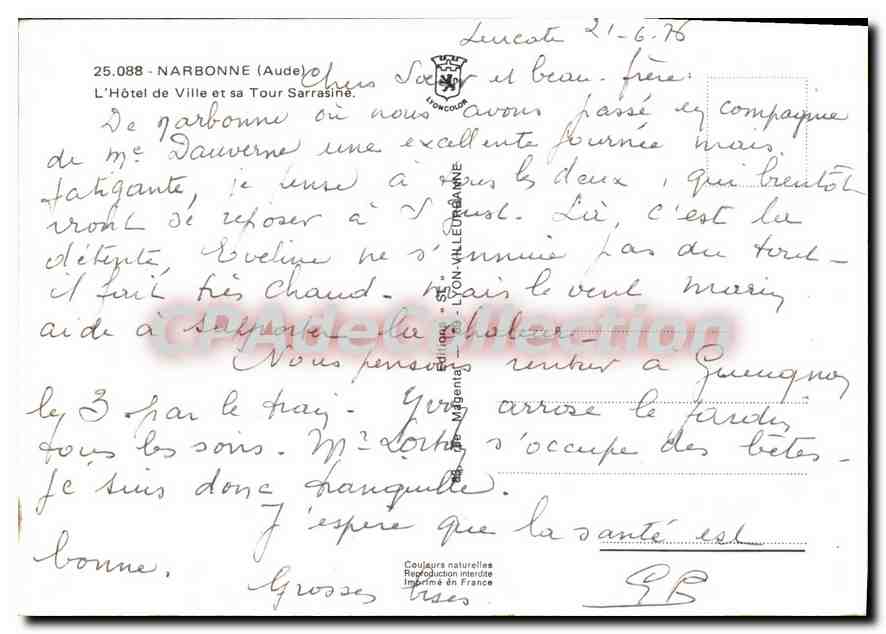 Leucate 21-6-76
25.088 - NARBONNE (Aude)
L'Hôtel de Ville et sa Tour Sarrasine.
LYONCOLOR
Chers Soeur et beau-frère.
De Narbonne où nous avons passé en compagnie
de Me Dauverne une excellente journée mais
fatigante, je pense à vous les deux, qui bientôt
iront se reposer à St Just. Là, c'est la
détente, Eveline ne s'ennuie pas du tout -
il fait très chaud - mais le vent marin
aide à supporter la chaleur -
Nous pensons rentrer à Gueugnon
le 3 par le train - Yvon arrose le jardin
tous les soirs. Mr s'occupe des bêtes -
je suis donc tranquille.
J'espère que la santé est
bonne.
Grosses bises
GB
Editions "SL"
rue Magenta - LYON-VILLEURBANNE
Couleurs naturelles
Reproduction interdite
Imprimé en France
CPAdeCollection